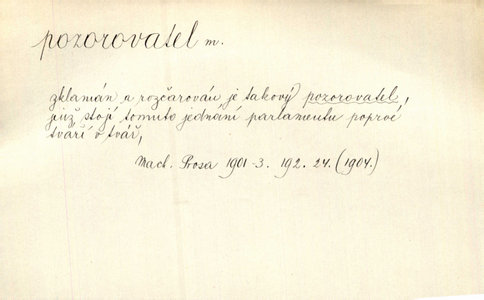 pozorovatel m.
zklamán a rozčarován je takový pozorovatel,
jenž stojí tomuto jednání parlamentu poprvé
tváří v tvář,
Mach. Prosa 1901-3. 192. 24. (1904.)